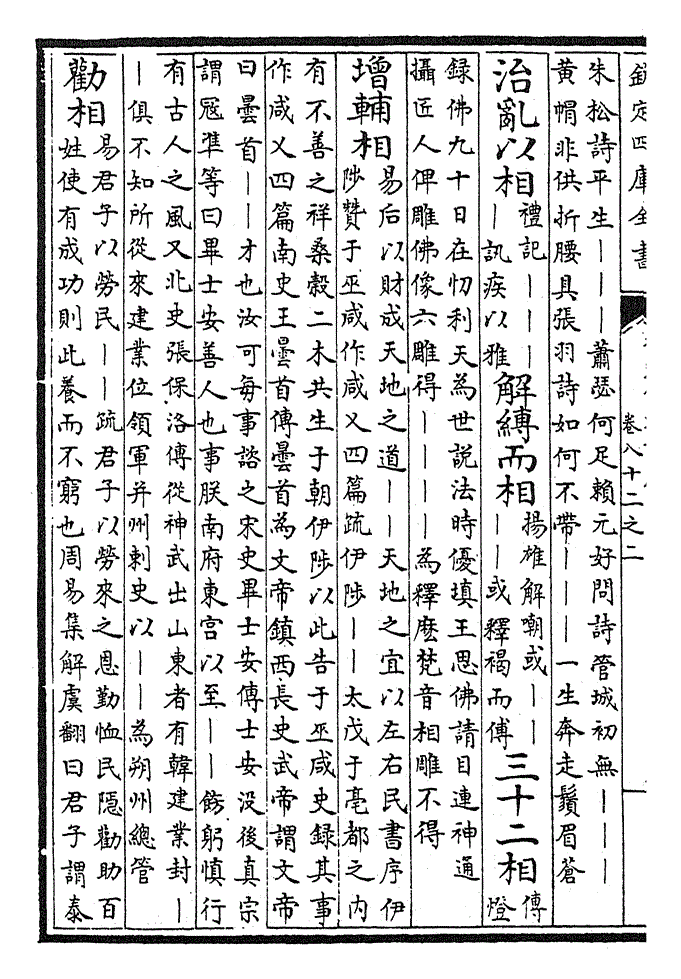 欽定四庫全書
卷八十二之二
朱松詩平生｜｜｜蕭瑟何足賴元好問詩管城初無｜｜｜
黃帽非供折腰具張羽詩如何不帶｜｜｜一生奔走鬚眉蒼
治亂以相 禮記｜｜｜
｜訊疾以雅
解縛而相 揚雄解嘲或｜｜
｜｜或釋褐而傅
三十二相 傳
燈
錄佛九十日在忉利天為世說法時優填王思佛請目連神通
攝匠人俾雕佛像六雕得｜｜｜｜為釋麽梵音相雕不得
增輔相 易后以財成天地之道｜｜天地之宜以左右民書序伊
陟贊于巫咸作咸乂四篇疏伊陟｜｜太戊于亳都之內
有不善之祥桑穀二木共生于朝伊陟以此告于巫咸史錄其事
作咸乂四篇南史王曇首傳曇首為文帝鎮西長史武帝謂文帝
曰曇首｜｜才也汝可每事諮之宋史畢士安傳士安没後真宗
謂寇準等曰畢士安善人也事朕南府東宮以至｜｜飭躬慎行
有古人之風又北史張保洛傳從神武出山東者有韓建業封｜
｜俱不知所從來建業位領軍并州刺史以｜｜為朔州總管
勸相 易君子以勞民｜｜疏君子以勞來之恩勤恤民隱勸助百
姓使有成功則此養而不窮也周易集解虞翻曰君子謂泰